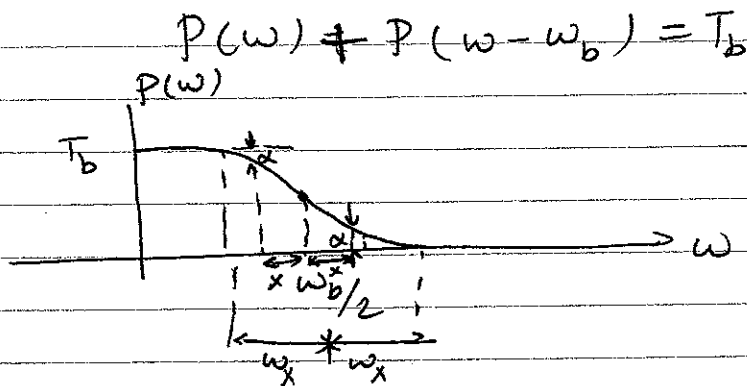 P(ω) + P(ω - ω_b) = T_b
P(ω)
T_b
α
α
ω
x ω_b/2 x
ω_x ω_x